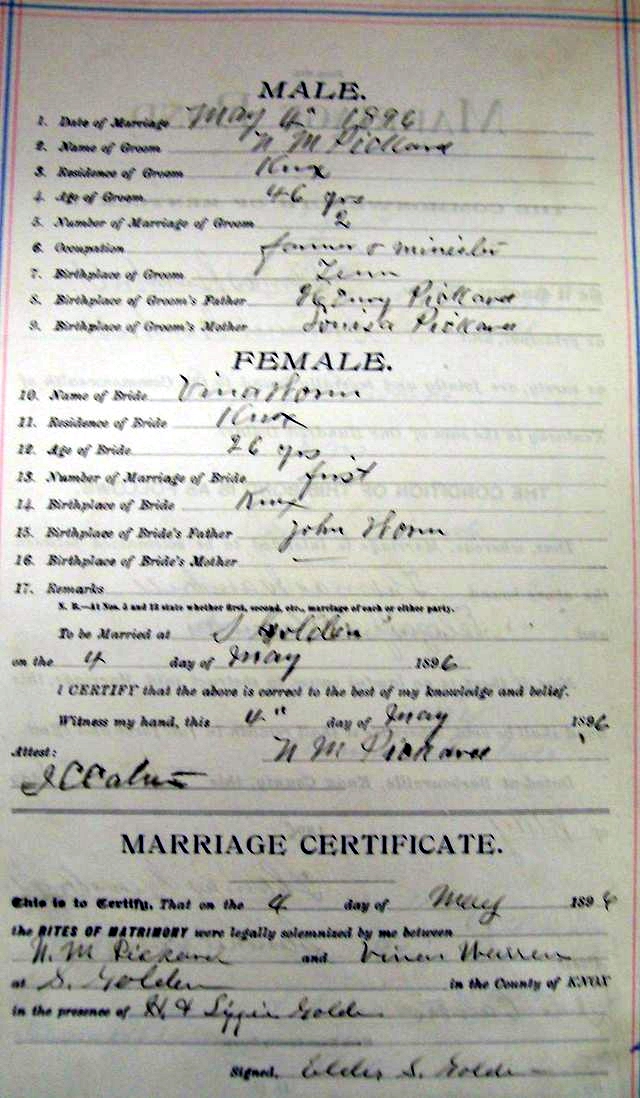 MALE.
1. Date of Marriage May 4" 1896
2. Name of Groom N M Pickard
3. Residence of Groom Knox
4. Age of Groom 46 yrs
5. Number of Marriage of Groom 2
6. Occupation farmer & minister
7. Birthplace of Groom Tenn
8. Birthplace of Groom's Father Henry Pickard
9. Birthplace of Groom's Mother Louisa Pickard
FEMALE.
10. Name of Bride Vina
11. Residence of Bride Knox
12. Age of Bride 26 yrs
13. Number of Marriage of Bride first
14. Birthplace of Bride Knox
15. Birthplace of Bride's Father John
16. Birthplace of Bride's Mother —
17. Remarks
N. B.—At Nos. 5 and 13 state whether first, second, etc., marriage of each or either party.
To be Married at S Golden
on the 4 day of May 1896
I CERTIFY that the above is correct to the best of my knowledge and belief.
Witness my hand, this 4" day of May 1896
N M Pickard
Attest:
J C
MARRIAGE CERTIFICATE.
This is to Certify, That on the 4 day of May 1896
the RITES OF MATRIMONY were legally solemnized by me between
N. M Pickard and Warren
at S. Golden in the County of KNOX
in the presence of H & Golden
Signed, Elder S. Golden